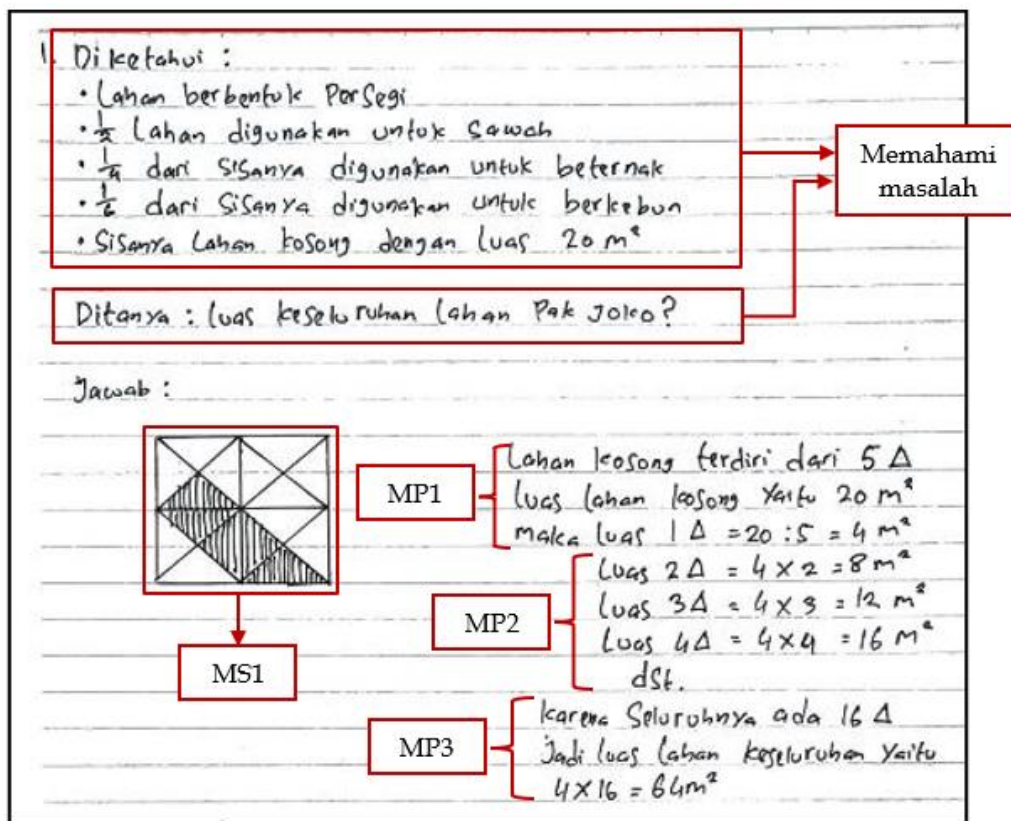 1. Diketahui :
• Lahan berbentuk Persegi
• 1/2 Lahan digunakan untuk sawah
• 1/4 dari sisanya digunakan untuk beternak
• 1/6 dari sisanya digunakan untuk berkebun
• Sisanya Lahan kosong dengan luas 20 m²
Memahami
masalah
Ditanya : luas keseluruhan lahan Pak Joko?
Jawab :
MS1
MP1
Lahan kosong terdiri dari 5 Δ
luas lahan kosong yaitu 20 m²
maka luas 1 Δ = 20 : 5 = 4 m²
MP2
Luas 2 Δ = 4 × 2 = 8 m²
Luas 3 Δ = 4 × 3 = 12 m²
Luas 4 Δ = 4 × 4 = 16 m²
dst.
MP3
karena Seluruhnya ada 16 Δ
Jadi luas lahan keseluruhan yaitu
4 × 16 = 64 m²